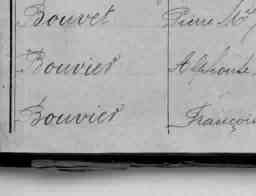 Bouvet Pierre M
Bouvier Alphonse
Bouvier François